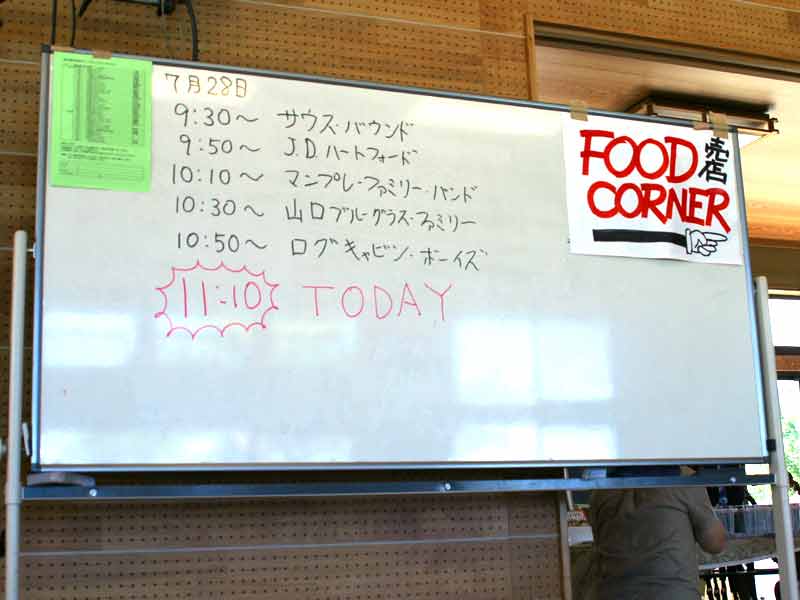 7月28日
9:30〜 サウス・バウンド
9:50〜 J.D.ハートフォード
10:10〜 マンプレ・ファミリー・バンド
10:30〜 山口ブルーグラス・ファミリー
10:50〜 ログキャビン・ボーイズ
11:10 TODAY
FOOD 売店
CORNER